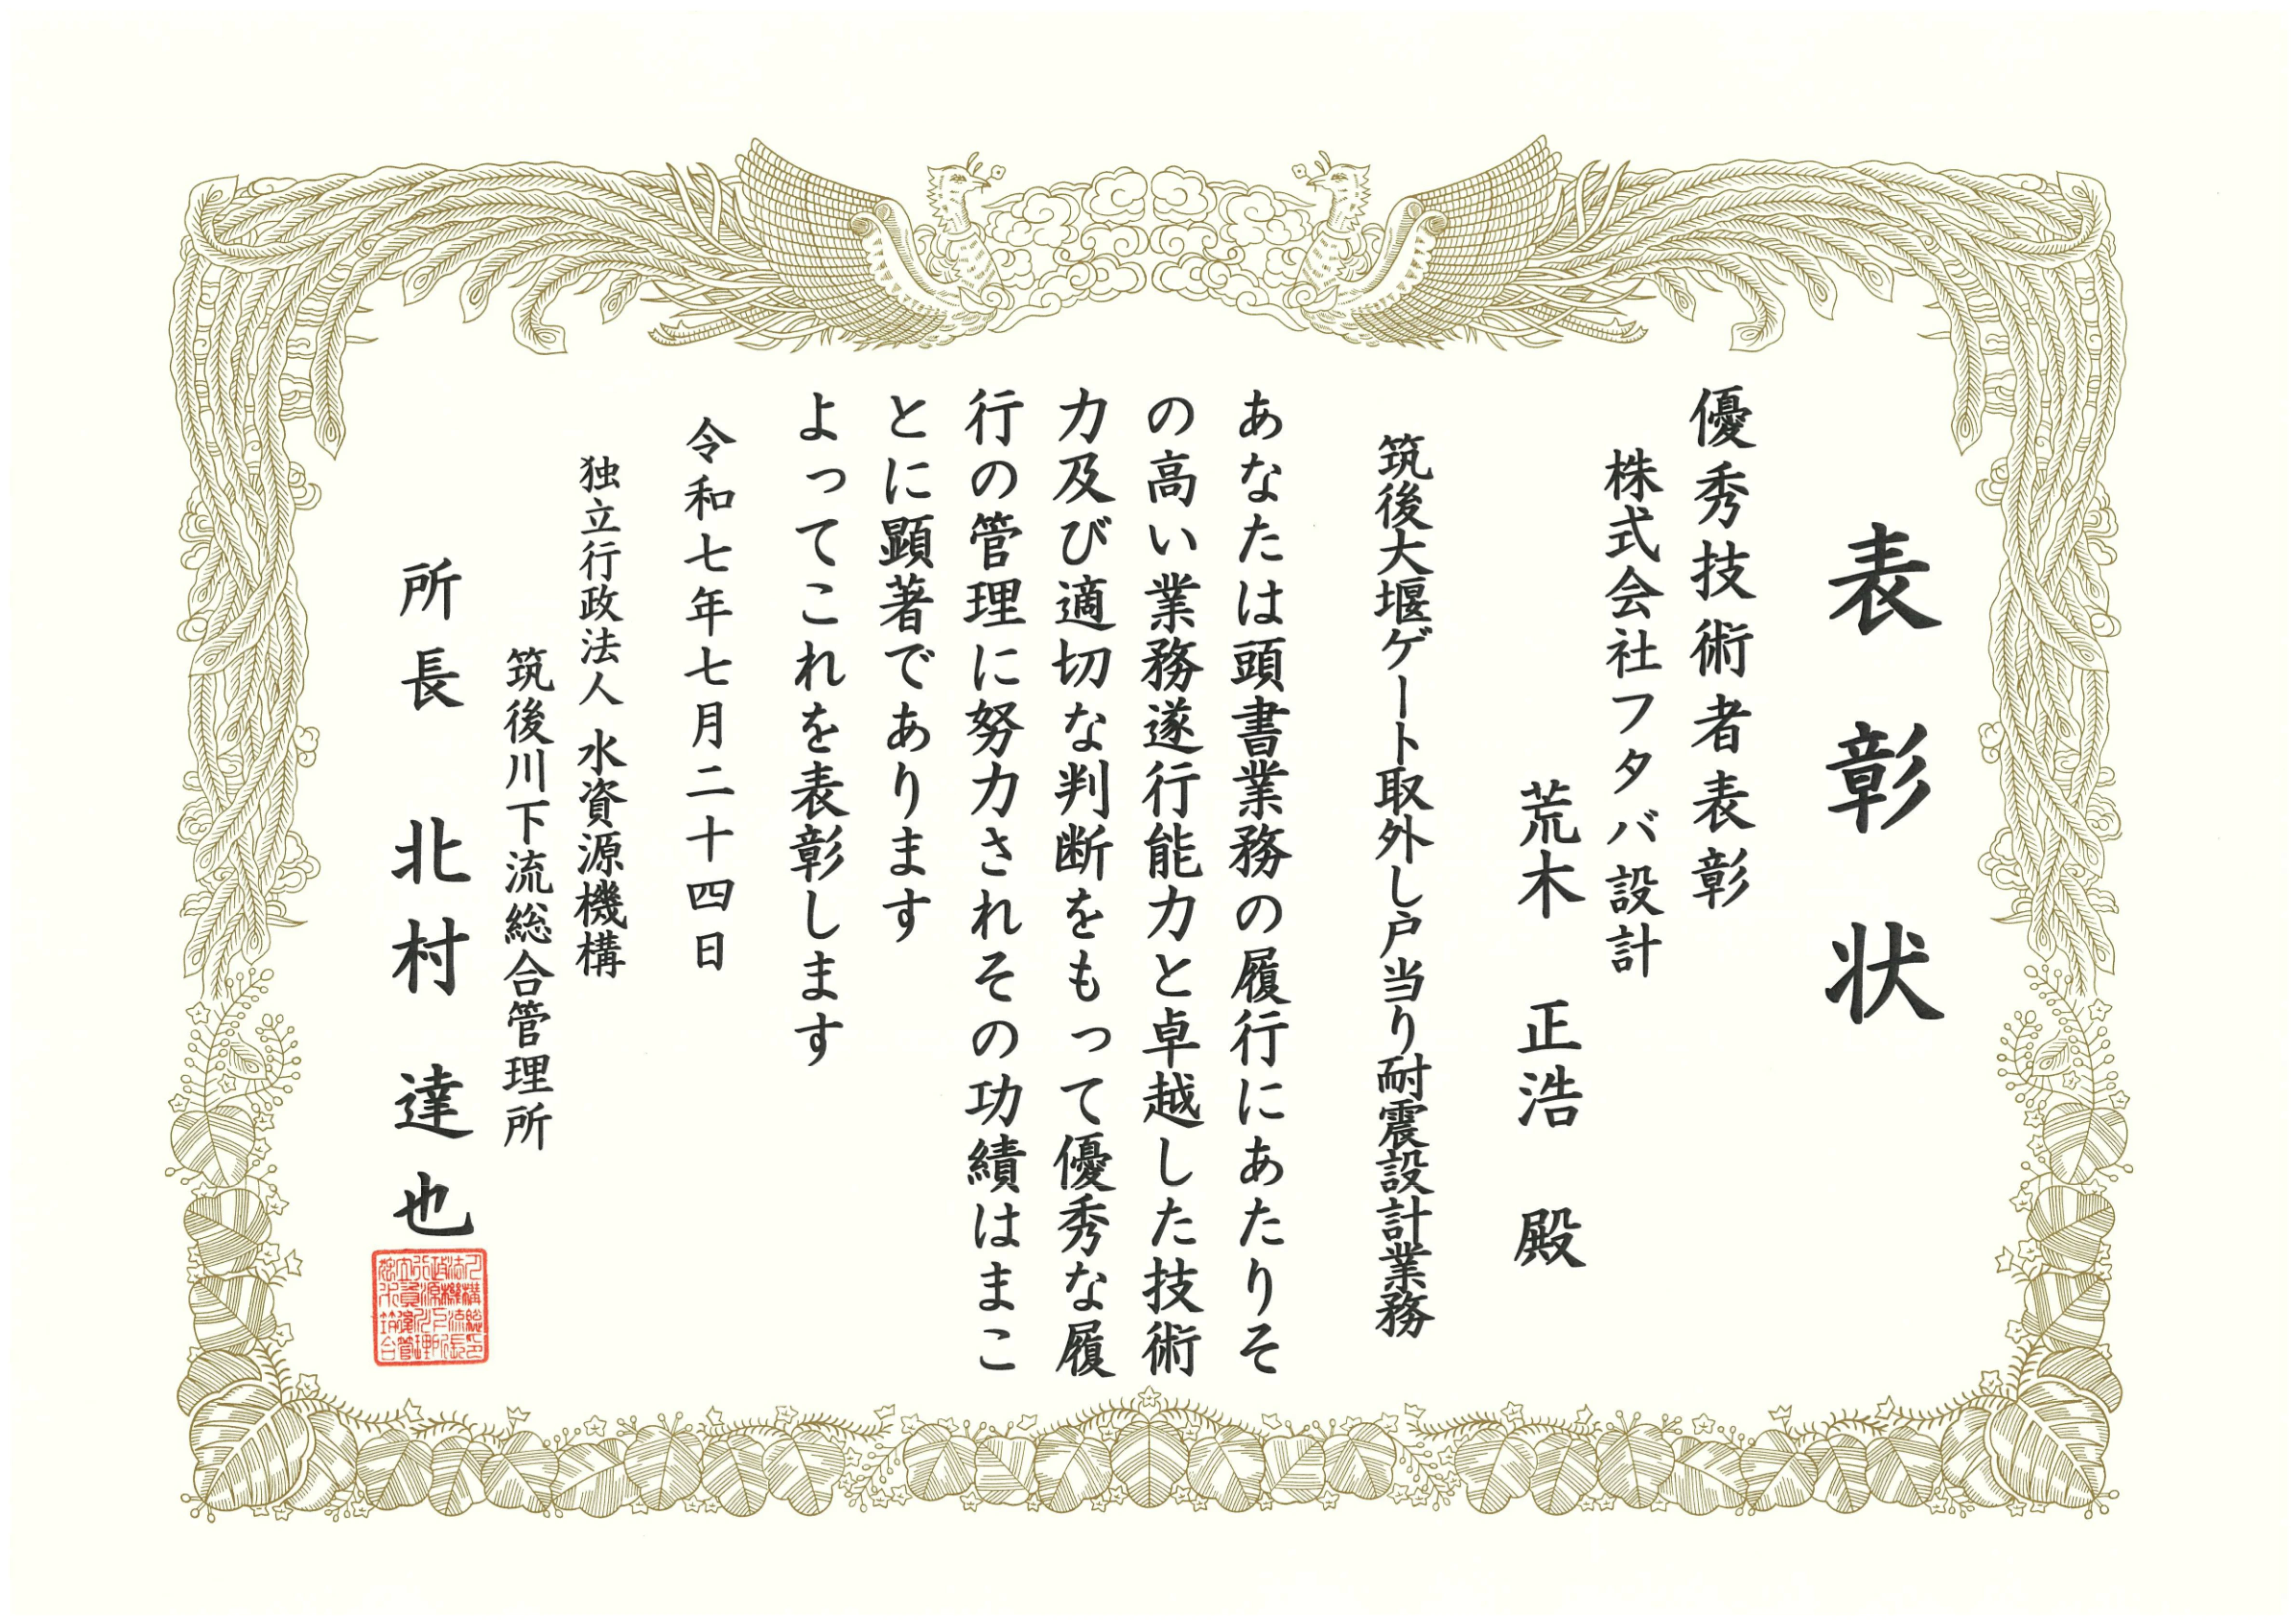 表彰状
優秀技術者表彰
株式会社フタバ設計
荒木 正浩 殿
筑後大堰ゲート取外し戸当り耐震設計業務
あなたは頭書業務の履行にあたりそ
の高い業務遂行能力と卓越した技術
力及び適切な判断をもって優秀な履
行の管理に努力されその功績はまこ
とに顕著であります
よってこれを表彰します
令和七年七月二十四日
独立行政法人 水資源機構
筑後川下流総合管理所
所長 北村 達也